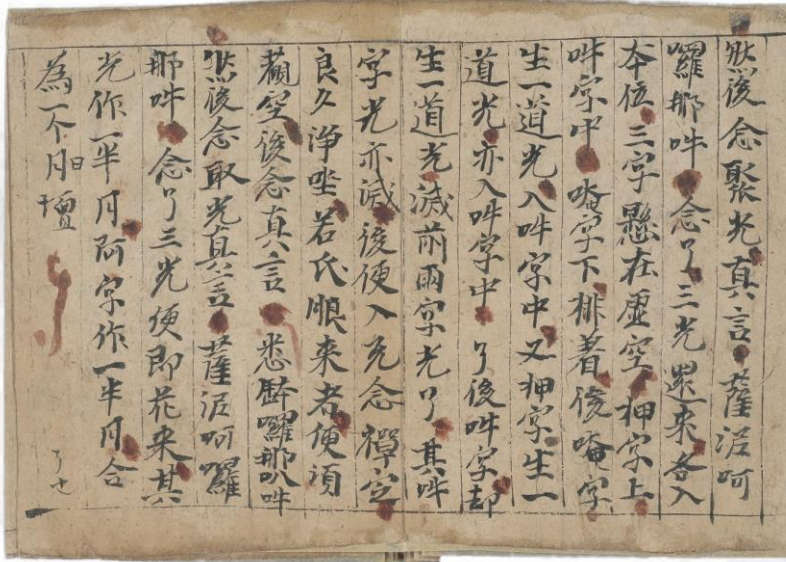 然後念聚光真言薩泥呵
囉那吽念了三光還來各入
本位三字懸在虛空押字上
吽字中唵字下排著後唵字
生一道光入吽字中又押字生一
道光亦入吽字中了後吽字却
生一道光滅前兩字光了其吽
字光亦滅後便入无念禪定
良久淨坐若氏眼来者便須
觀空後念真言悉囉那吽
然後念取光真言薩泥呵囉
那吽念了三光便即花来其
光作一半月阿字作一半月合
為一个月壇
了也